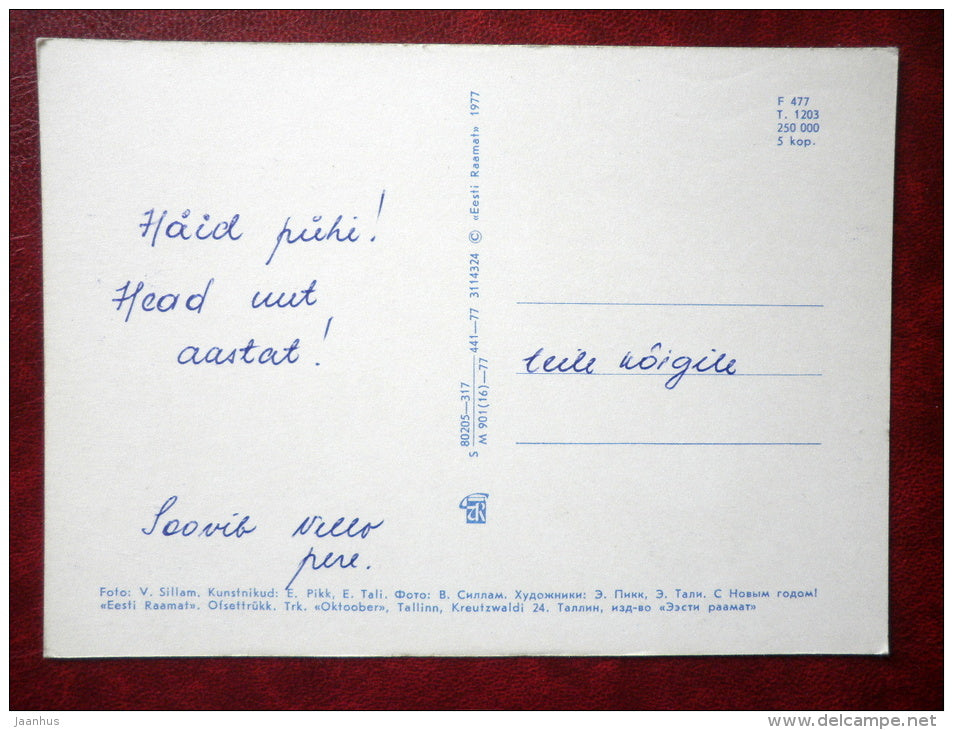 Häid pühi!
Head uut
aastat!
Soovib Vello
pere.
S 80205—317 441—77 3114324 © «Eesti Raamat» 1977
M 901(16)—77
F 477
T. 1203
250 000
5 kop.
teile kõigile
Foto: V. Sillam. Kunstnikud: E. Pikk, E. Tali. Фото: В. Силлам. Художники: Э. Пикк, Э. Тали. С Новым годом!
«Eesti Raamat». Ofsettrükk. Trk. «Oktoober», Tallinn, Kreutzwaldi 24. Таллин, изд-во «Ээсти раамат»
Jaanhus
delcampe.net